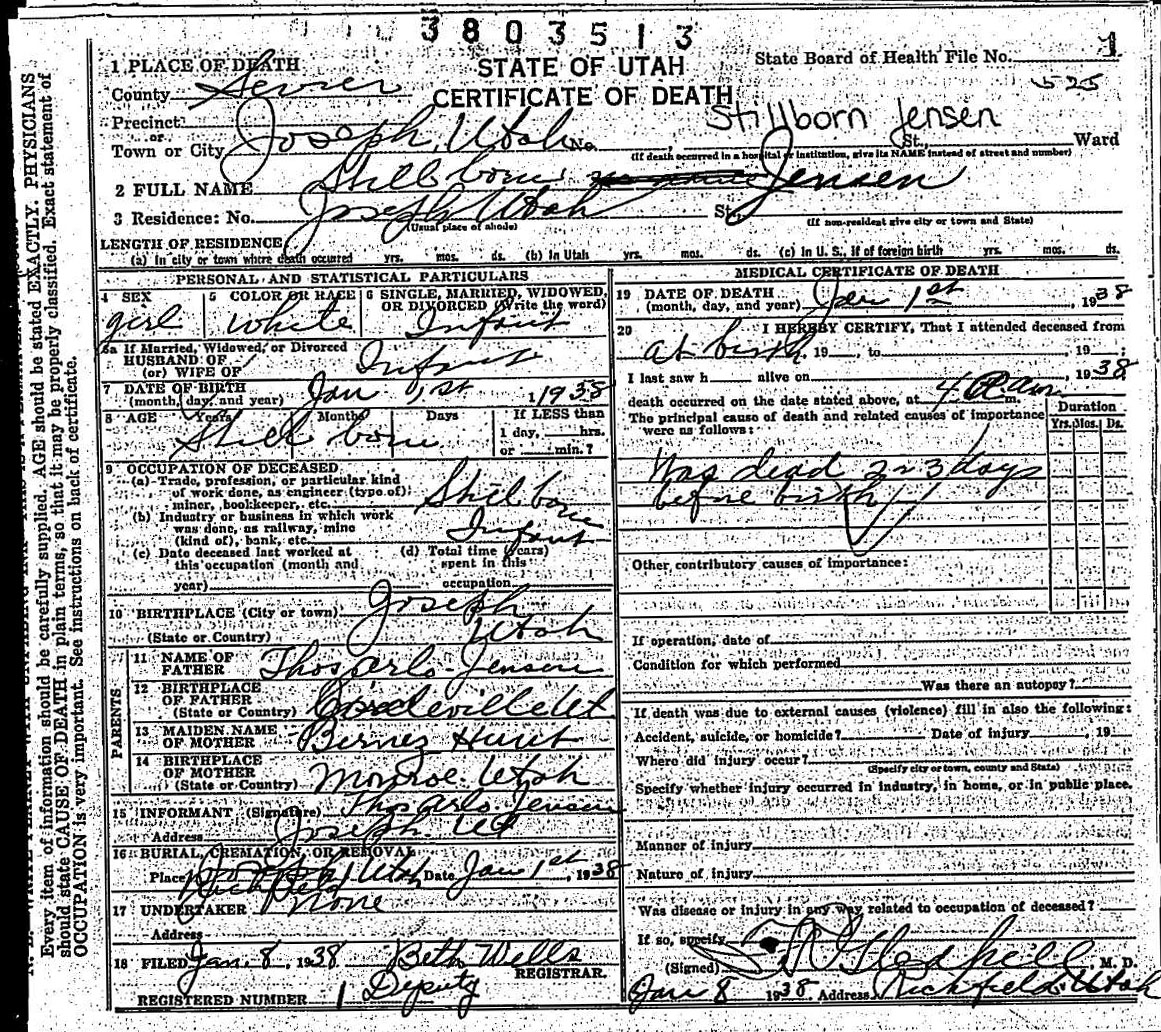 3803513
1
STATE OF UTAH
State Board of Health File No.
525
CERTIFICATE OF DEATH
1 PLACE OF DEATH
County Sevier
Stillborn Jensen
Precinct
or
Town or City Joseph, Utah No. St., Ward
(If death occurred in a hospital or institution, give its NAME instead of street and number)
2 FULL NAME Stillborn Jensen
3 Residence: No. Joseph Utah St.,
(Usual place of abode) (If non-resident give city or town and State)
LENGTH OF RESIDENCE
(a) In city or town where death occurred yrs. mos. ds. (b) In Utah yrs. mos. ds. (c) In U. S., if of foreign birth yrs. mos. ds.
PERSONAL AND STATISTICAL PARTICULARS
4 SEX girl
5 COLOR OR RACE White
6 SINGLE, MARRIED, WIDOWED, OR DIVORCED (Write the word) Infant
6a If Married, Widowed, or Divorced
HUSBAND OF
(or) WIFE OF Infant
7 DATE OF BIRTH
(month, day, and year) Jan 1st 1938
8 AGE Years Months Days If LESS than
1 day, hrs.
or min.?
Still born
9 OCCUPATION OF DECEASED
(a) Trade, profession, or particular kind
of work done, as engineer (type of)
miner, bookkeeper, etc. Stillborn
(b) Industry or business in which work
was done, as railway, mine
(kind of), bank, etc. Infant
(c) Date deceased last worked at
this occupation (month and
year)
(d) Total time (years)
spent in this
occupation
10 BIRTHPLACE (City or town) Joseph
(State or Country) Utah
PARENTS
11 NAME OF
FATHER Thos Arlo Jensen
12 BIRTHPLACE
OF FATHER
(State or Country) Ut
13 MAIDEN NAME
OF MOTHER Bernez Hunt
14 BIRTHPLACE
OF MOTHER
(State or Country) Monroe Utah
15 INFORMANT (Signature) Thos Arlo Jensen
Address Joseph Ut
16 BURIAL, CREMATION, OR REMOVAL
Place Joseph, Utah Date Jan 1st, 1938
Richfield
17 UNDERTAKER None
Address
18 FILED Jan. 8, 1938 Beth Wells
REGISTRAR.
REGISTERED NUMBER 1 Deputy
MEDICAL CERTIFICATE OF DEATH
19 DATE OF DEATH
(month, day, and year) Jan 1st, 1938
20 I HEREBY CERTIFY, That I attended deceased from
at birth, 19 , to , 19 ;
I last saw h alive on , 1938
death occurred on the date stated above, at 4 m.
The principal cause of death and related causes of importance
were as follows:
Duration
Yrs. Mos. Ds.
Was dead 2 - 3 days
before birth
Other contributory causes of importance:
If operation, date of
Condition for which performed
Was there an autopsy?
If death was due to external causes (violence) fill in also the following:
Accident, suicide, or homicide? Date of injury , 19
Where did injury occur?
(Specify city or town, county and State)
Specify whether injury occurred in industry, in home, or in public place.
Manner of injury
Nature of injury
Was disease or injury in any way related to occupation of deceased?
If so, specify
(Signed) Gledhill M. D.
Jan 8 1938. Address Richfield Utah
Every item of information should be carefully supplied. AGE should be stated EXACTLY. PHYSICIANS
should state CAUSE OF DEATH in plain terms, so that it may be properly classified. Exact statement of
OCCUPATION is very important. See instructions on back of certificate.